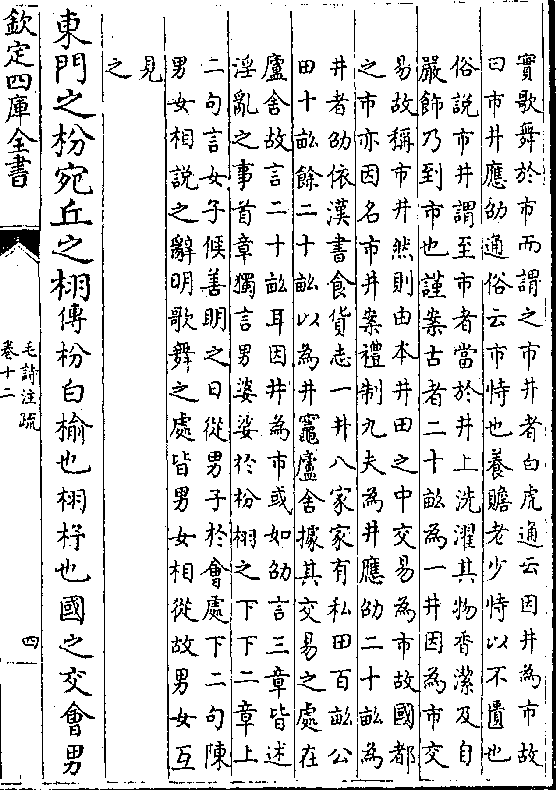 實歌舞於市而謂之市井者白虎通云因井為市故
曰市井應劭通俗云市恃也養贍老少恃以不匱也
俗說市井謂至市者當於井上洗濯其物香潔及自
嚴飾乃到市也謹案古者二十畝為一井因為市交
易故稱市井然則由本井田之中交易為市故國都
之市亦因名市井案禮制九夫為井應劭二十畝為
井者劭依漢書食貨志一井八家家有私田百畝公
田十畝餘二十畝以為井竈廬舍據其交易之處在
廬舍故言二十畝耳因井為市或如劭言三章皆述
淫亂之事首章獨言男婆娑於枌栩之下下二章上
二句言女子候善明之日從男子於會處下二句陳
男女相說之辭明歌舞之處皆男女相從故男女互
見
之
東門之枌宛丘之栩傳枌白榆也栩杼也國之交會男
欽定四庫全書
毛詩注疏
卷十二
四